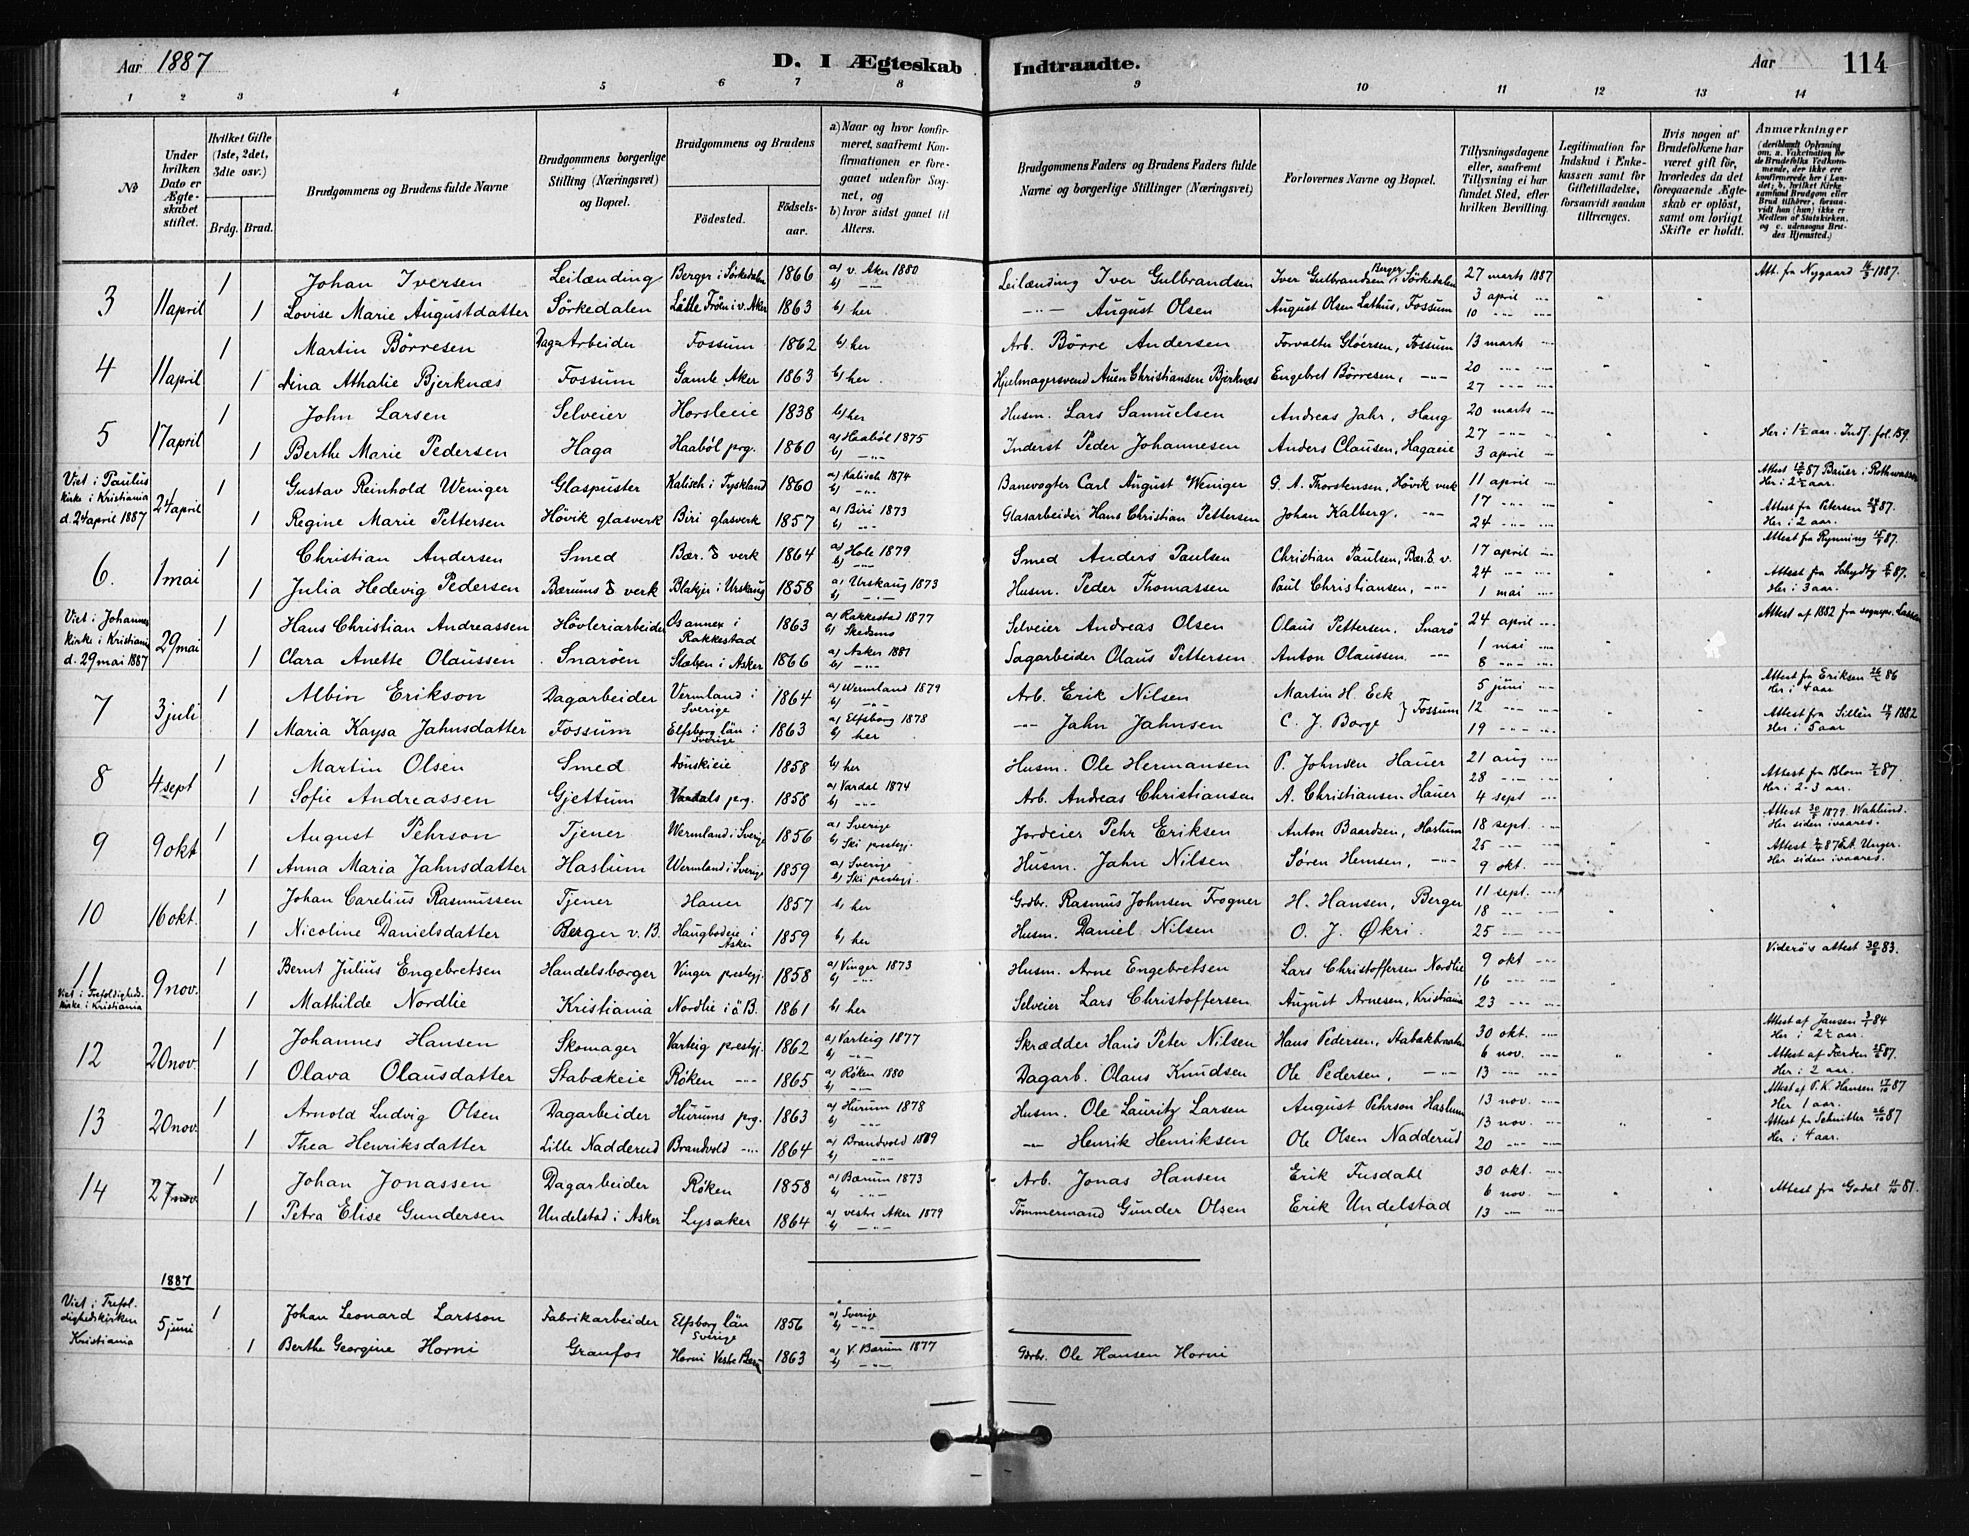 Aar 1887 D. I Ægteskab Indtraadte. Aar 114
1 2 3 4 5 6 7 8 9 10 11 12 13 14
No
Under hvilken Dato er Ægteskabet stiftet.
Hvilket Gifte (1ste, 2det, 3dte osv.)
Brdg. Brud.
Brudgommens og Brudens fulde Navne
Brudgommens borgerlige Stilling (Næringsvei) og Bopæl.
Brudgommens og Brudens
Födested. Födselsaar.
a) Naar og hvor konfirmeret, saafremt Konfirmationen er foregaaet udenfor Sognet, og
b) hvor sidst gaaet til Alters.
Brudgommens Faders og Brudens Faders fulde Navne og borgerlige Stillinger (Næringsvei)
Forlovernes Navne og Bopæl.
Tillysningsdagene eller, saafremt Tillysning ei har fundet Sted, efter hvilken Bevilling.
Legitimation for Indskud i Enkekassen samt for Giftetilladelse, forsaavidt saadan tiltrænges.
Hvis nogen af Brudefolkene har været gift før, hvorledes da det foregaaende Ægteskab er oplöst, samt om lovligt Skifte er holdt.
Anmærkninger (deriblandt Oplysning om, a. Vakcination for de Brudefolks Vedkommende, der ikke ere konfirmerede her i Landet; b. hvilket Kirkesamfund Brudgom eller Brud tilhörer, forsaavidt han (hun) ikke er Medlem af Statskirken, og c. udensogns Brudes Hjemsted.)
3 11 april 1 Johan Iversen Leilænding Berger i Sörkedalen 1866 a) v. Aker 1880 b) -"- Leilænding Iver Gulbrandsen Iver Gulbrandsen Berger i Sörkedalen 27 marts 1887 Att. fra Nygaard 14/3 1887.
1 Lovise Marie Augustdatter Sörkedalen Lille Fröen i v. Aker 1863 b) her -"- August Olsen August Olsen Lathus, Fossum 3 april 10 -"-
4 11 april 1 Martin Börresen Dagarbeider Fossum 1862 b) her Arb. Börre Andersen Forvalter Glöersen, Fossum 13 marts
1 Dina Athalie Bjerknæs Fossum Gamle Aker 1863 b) her Hjulmagersvend Auen Christiansen Bjerknæs Engebret Börresen, -"- 20 -"- 27 -"-
5 17 april 1 John Larsen Selveier Horsleeie 1838 b) her Husm. Lars Samuelsen Andreas Jahr, Haug 20 marts
1 Berthe Marie Pedersen Haga Haaböl prg. 1860 a) Haaböl 1875 b) -"- Inderst Peder Johannesen Anders Clausen, Hagaeie 27 -"- 3 april Her i 1½ aar. Indf. fol. 159.
Viet i Paulus kirke i Kristiania d. 24 april 1887 24 april 1 Gustav Reinhold Weniger Glaspuster Kalisch i Tyskland 1860 a) Kalisch 1874 b) -"- Banevogter Carl August Weniger G. A. Thorstensen, Hövik verk 11 april Her i 2½ aar.
1 Regine Marie Pettersen Hövik glasverk Biri glasverk 1857 a) Biri 1873 b) -"- Glasarbeider Hans Christian Pettersen Johan Kalberg, -"- 17 -"- 24 -"- Attest fra Petersen Her i 2 aar.
6. 1 mai 1 Christian Andersen Smed Bær. verk 1864 a) Hole 1879 b) -"- Smed Anders Paulsen Christian Paulsen, Bær. v. 17 april Attest fra Rynning
1 Julia Hedevig Pedersen Bærums verk Blakjer i Urskaug 1858 a) Urskaug 1873 b) -"- Husm. Peder Thomassen Paul Christiansen, -"- 24 -"- 1 mai Her i 3 aar.
Viet i Johannes kirke i Kristiania d. 29 mai 1887 29 mai 1 Hans Christian Andreassen Hövleriarbeider Os annex i Rakkestad 1863 a) Rakkestad 1877 b) Skedsmo Selveier Andreas Olsen Olaus Pettersen, Snarö 24 april Attest af 1882 fra sognepr. Lassen
1 Clara Anette Olaussen Snaröen Slæben i Asker 1866 a) Asker 1881 b) -"- Sagarbeider Olaus Pettersen Anton Olaussen -"- 1 mai 8 -"-
7 3 juli 1 Albin Erikson Dagarbeider Vermland i Sverige 1864 a) Wermland 1879 b) -"- Arb. Erik Nilsen Martin H. Eck 5 juni Attest fra Eriksen 26/2 86 Her i 4 aar
1 Maria Kaysa Jahnsdatter Fossum Elfsborg län i Sverige 1863 a) Elfsborg 1878 b) her -"- Jahn Jahnsen C. J. Borge } Fossum 12 -"- 19 -"- Attest fra Sillén 1882 Her i 5 aar
8 4 sept 1 Martin Olsen Smed Lönskieie 1858 b) her Husm. Ole Hermansen P. Johnsen Hauer 21 aug
1 Sofie Andreassen Gjettum Vardals prg. 1858 a) Vardal 1874 b) -"- Arb. Andreas Christiansen A. Christiansen Hauer 28 -"- 4 sept Attest fra Blom 87. Her i 2-3 aar.
9 9 okt 1 August Pehrson Tjener Wermland i Sverige 1856 a) Sverige b) Ski prestegj. Jordeier Pehr Eriksen Anton Baardsen, Haslum 18 sept. Attest 1879 Wahlund. Her siden ivaares.
1 Anna Maria Jahnsdatter Haslum Wermland i Sverige 1859 a) Sverige b) Ski prestegj. Husm. Jahn Nilsen Søren Hemsen, -"- 25 -"- 9 okt. Her siden ivaares.
10 16 okt. 1 Johan Carelius Rasmussen Tjener Hauer 1857 b) her Grdbr. Rasmus Johnsen Frogner H. Hansen, Berger 11 sept.
1 Nicoline Danielsdatter Berger v. B. Haugbodeie i Asker 1859 b) her Husm. Daniel Nilsen O. J. Økri. 18 -"- 25 -"-
11 Viet i Trefoldigheds-kirke i Kristiania 9 nov. 1 Bernt Julius Engebretsen Handelsborger Vinger prestegj. 1858 a) Vinger 1873 b) -"- Husm. Arne Engebretsen Lars Christoffersen Nordlie 9 okt Viderö's attest 83.
1 Mathilde Nordlie Kristiania Nordlie i ö B. 1861 b) her Selveier Lars Christoffersen August Arnesen, Kristiania 16 -"- 23 -"-
12 20 nov. 1 Johannes Hansen Skomager Varteig prestgj. 1862 a) Varteig 1877 b) -"- Skrædder Hans Peter Nilsen Hans Pedersen, Stabækbraaten 30 okt. Attest af Jansen 3/1 84 Her i 2½ aar.
1 Olava Olausdatter Stabækeie Röken -"- 1865 a) Röken 1880 b) -"- Dagarb. Olaus Knudsen Ole Pedersen, -"- 6 nov. 13 -"- Attest af Færden Her i 2 aar.
13 20 nov. 1 Arnold Ludvig Olsen Dagarbeider Hurums prg. 1863 a) Hurum 1878 b) -"- Husm. Ole Lauritz Larsen August Pehrson Haslum 13 nov. Attest af P. K. Hansen 87 Her 1 aar.
1 Thea Henriksdatter Lille Nadderud Brandvold -"- 1864 a) Brandvold b) -"- -"- Henrik Henriksen Ole Olsen Nadderud 13 nov. 20 -"- Attest fra Schnitler 87 Her i 4 aar.
14 27 nov. 1 Johan Jonassen Dagarbeider Röken 1858 a) Bærum 1873 b) -"- Arb. Jonas Hansen Erik Fusdahl 30 okt.
1 Petra Elise Gundersen Undelstad i Asker Lysaker 1864 a) vestre Aker 1879 b) -"- Tömmermand Gunder Olsen Erik Undelstad 6 nov. 13 -"- Attest fra Godal
1887
Viet i Trefoldighedskirken Kristiania 5 juni 1 Johan Leonard Larsson Fabrikarbeider Elfsborg län Sverige 1856 a) Sverige b) -"-
1 Berthe Georgine Horni Granfos Horni Vestre Bær. 1863 a) V. Bærum 1877 b) -"- Gbrbr. Ole Hansen Horni